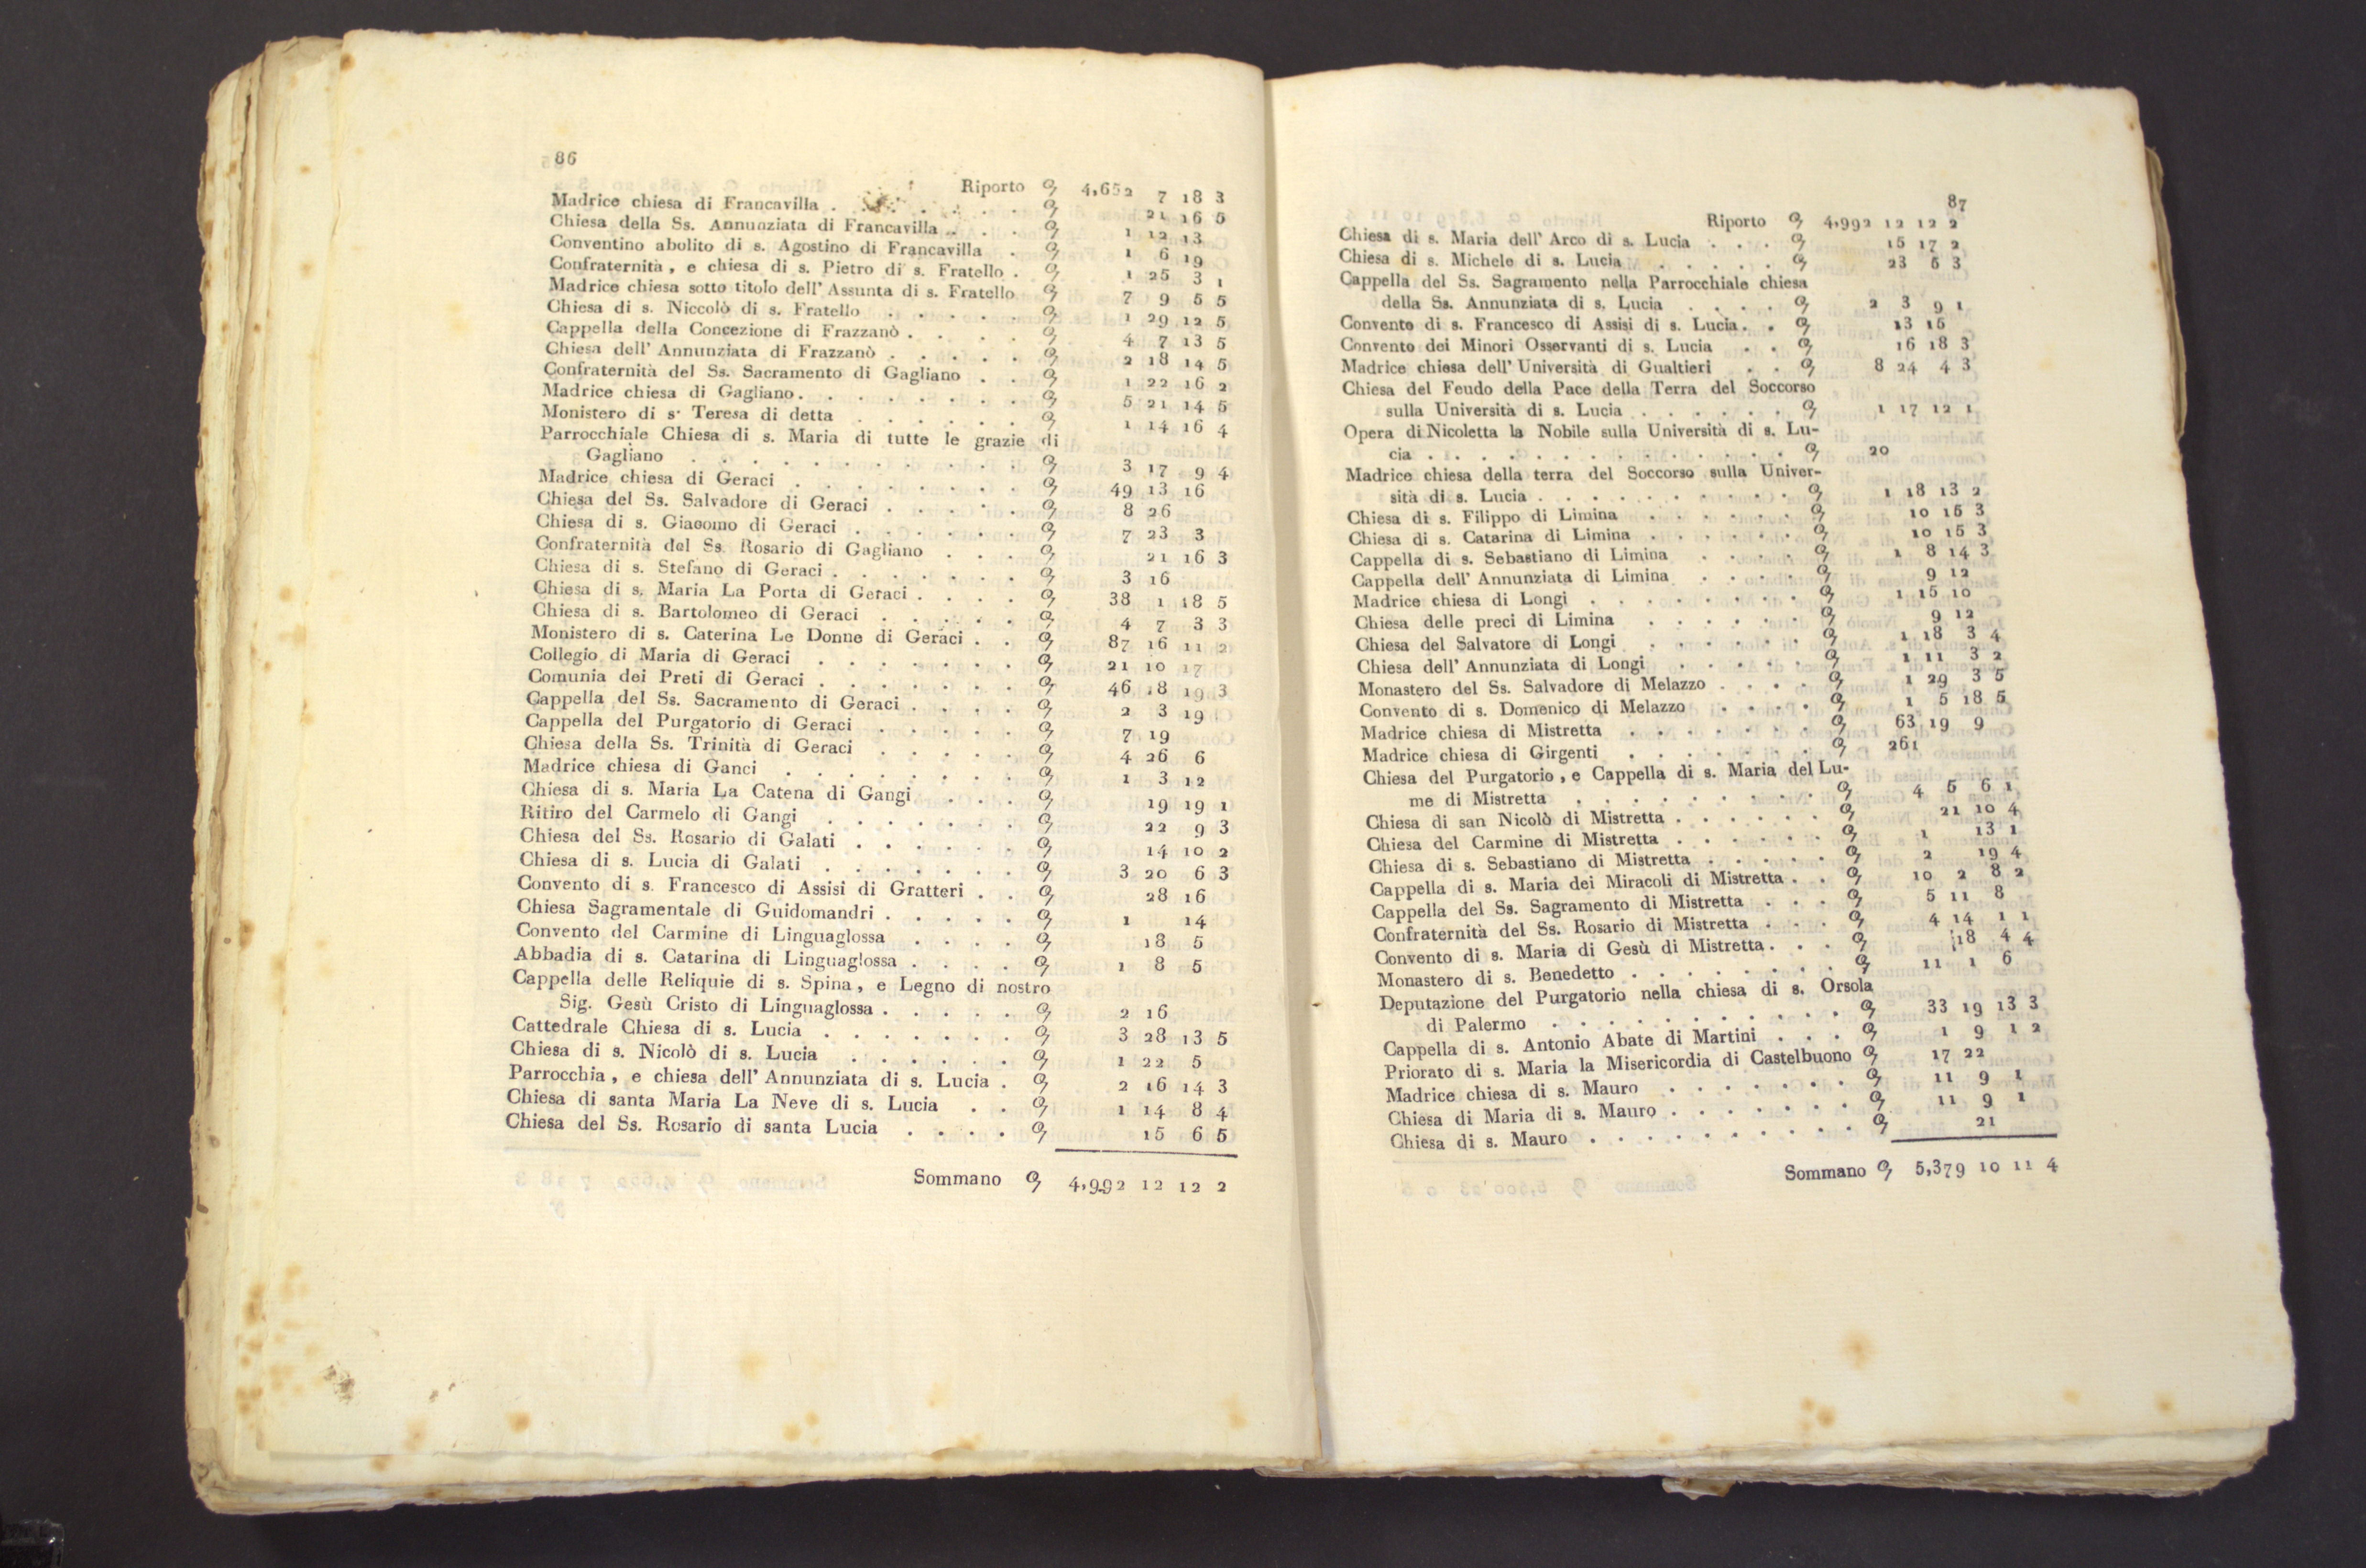 86
Riporto 4,652 7 18 3
Madrice chiesa di Francavilla . . . . . . 21 16 5
Chiesa della Ss. Annunziata di Francavilla . . . 1 12 13
Conventino abolito di s. Agostino di Francavilla . 1 6 19
Confraternità, e chiesa di s. Pietro di s. Fratello . 1 25 3 1
Madrice chiesa sotto titolo dell' Assunta di s. Fratello 7 9 5 5
Chiesa di s. Niccolò di s. Fratello . . . . . 1 29 12 5
Cappella della Concezione di Frazzanò . . . . 4 7 13 5
Chiesa dell' Annunziata di Frazzanò . . . . . 2 18 14 5
Confraternità del Ss. Sacramento di Gagliano . . 1 22 16 2
Madrice chiesa di Gagliano . . . . . . . . 5 21 14 5
Monistero di s. Teresa di detta . . . . . . 1 14 16 4
Parrocchiale Chiesa di s. Maria di tutte le grazie di
Gagliano . . . . . . . . . . . 3 17 9 4
Madrice chiesa di Geraci . . . . . . . . 49 13 16
Chiesa del Ss. Salvadore di Geraci . . . . . 8 26
Chiesa di s. Giacomo di Geraci . . . . . . 7 23 3
Confraternità del Ss. Rosario di Gagliano . . . 21 16 3
Chiesa di s. Stefano di Geraci . . . . . . . 3 16
Chiesa di s. Maria La Porta di Geraci . . . . 38 1 18 5
Chiesa di s. Bartolomeo di Geraci . . . . . 4 7 3 3
Monistero di s. Caterina Le Donne di Geraci . . 87 16 11 2
Collegio di Maria di Geraci . . . . . . . 21 10 17
Comunia dei Preti di Geraci . . . . . . . 46 18 19 3
Cappella del Ss. Sacramento di Geraci . . . . 2 3 19
Cappella del Purgatorio di Geraci . . . . . 7 19
Chiesa della Ss. Trinità di Geraci . . . . . 4 26 6
Madrice chiesa di Ganci . . . . . . . . 1 3 12
Chiesa di s. Maria La Catena di Gangi . . . 19 19 1
Ritiro del Carmelo di Gangi . . . . . . . 22 9 3
Chiesa del Ss. Rosario di Galati . . . . . . 14 10 2
Chiesa di s. Lucia di Galati . . . . . . . 3 20 6 3
Convento di s. Francesco di Assisi di Gratteri . . 28 16
Chiesa Sagramentale di Guidomandri . . . . . 1 14
Convento del Carmine di Linguaglossa . . . . 18 5
Abbadia di s. Catarina di Linguaglossa . . . . 1 8 5
Cappella delle Reliquie di s. Spina, e Legno di nostro
Sig. Gesù Cristo di Linguaglossa . . . . . 2 16
Cattedrale Chiesa di s. Lucia . . . . . . . 3 28 13 5
Chiesa di s. Nicolò di s. Lucia . . . . . . 1 22 5
Parrocchia, e chiesa dell' Annunziata di s. Lucia . 2 16 14 3
Chiesa di santa Maria La Neve di s. Lucia . . 1 14 8 4
Chiesa del Ss. Rosario di santa Lucia . . . . 15 6 5
Sommano 4,992 12 12 2
87
Riporto 4,992 12 12 2
Chiesa di s. Maria dell' Arco di s. Lucia . . . 15 17 2
Chiesa di s. Michele di s. Lucia . . . . . 23 5 3
Cappella del Ss. Sagramento nella Parrocchiale chiesa
della Ss. Annunziata di s. Lucia . . . . 2 3 9 1
Convento di s. Francesco di Assisi di s. Lucia . . 13 15
Convento dei Minori Osservanti di s. Lucia . . 16 18 3
Madrice chiesa dell' Università di Gualtieri . . 8 24 4 3
Chiesa del Feudo della Pace della Terra del Soccorso
sulla Università di s. Lucia . . . . . . 1 17 12 1
Opera di Nicoletta la Nobile sulla Università di s. Lu-
cia . . . . . . . . . . . . . . 20
Madrice chiesa della terra del Soccorso sulla Univer-
sità di s. Lucia . . . . . . . . . . 1 18 13 2
Chiesa di s. Filippo di Limina . . . . . . 10 15 3
Chiesa di s. Catarina di Limina . . . . . . 10 15 3
Cappella di s. Sebastiano di Limina . . . . 1 8 14 3
Cappella dell' Annunziata di Limina . . . . 9 12
Madrice chiesa di Longi . . . . . . . . 1 15 10
Chiesa delle preci di Limina . . . . . . 9 12
Chiesa del Salvatore di Longi . . . . . . 1 18 3 4
Chiesa dell' Annunziata di Longi . . . . . 1 11 3 2
Monastero del Ss. Salvadore di Melazzo . . . . 1 29 3 5
Convento di s. Domenico di Melazzo . . . . 1 5 18 5
Madrice chiesa di Mistretta . . . . . . . 63 19 9
Madrice chiesa di Girgenti . . . . . . . 261
Chiesa del Purgatorio, e Cappella di s. Maria del Lu-
me di Mistretta . . . . . . . . . 4 5 6 1
Chiesa di san Nicolò di Mistretta . . . . . . 21 10 4
Chiesa del Carmine di Mistretta . . . . . . 1 13 1
Chiesa di s. Sebastiano di Mistretta . . . . . 2 19 4
Cappella di s. Maria dei Miracoli di Mistretta . . 10 2 8 2
Cappella del Ss. Sagramento di Mistretta . . . 5 11 8
Confraternità del Ss. Rosario di Mistretta . . . 4 14 1 1
Convento di s. Maria di Gesù di Mistretta . . . 18 4 4
Monastero di s. Benedetto . . . . . . . . 11 1 6
Deputazione del Purgatorio nella chiesa di s. Orsola
di Palermo . . . . . . . . . . . 33 19 13 3
Cappella di s. Antonio Abate di Martini . . . 1 9 1 2
Priorato di s. Maria la Misericordia di Castelbuono 17 22
Madrice chiesa di s. Mauro . . . . . . . 11 9 1
Chiesa di Maria di s. Mauro . . . . . . . 11 9 1
Chiesa di s. Mauro . . . . . . . . . . 21
Sommano 5,379 10 11 4